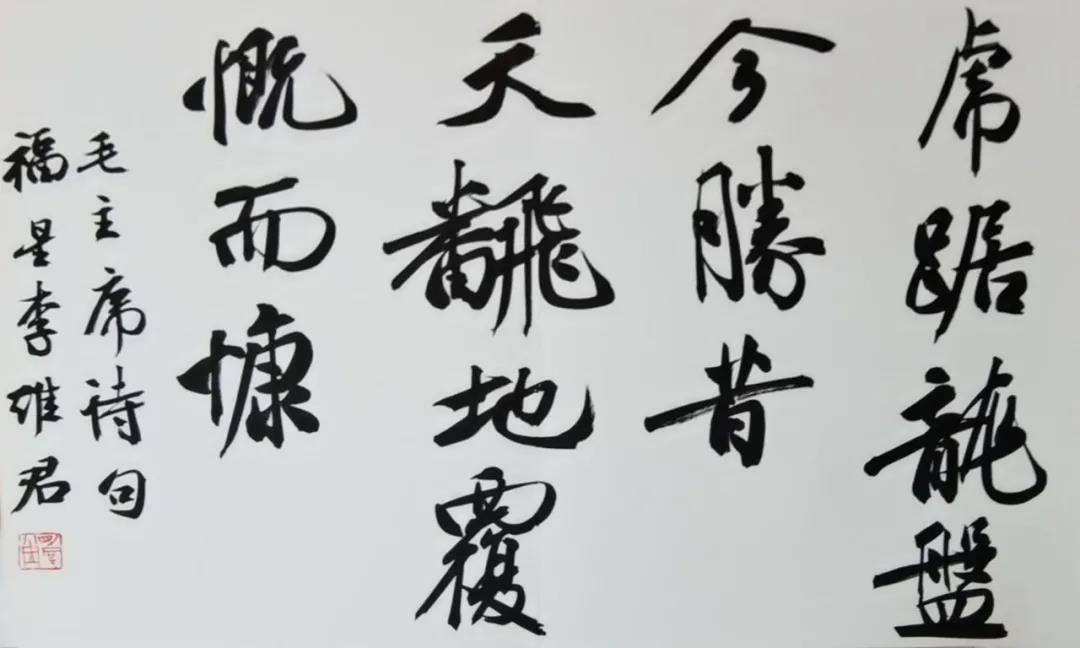 虎踞龍盤
今勝昔
天飜地覆
慨而慷
毛主席诗句
福星李维君